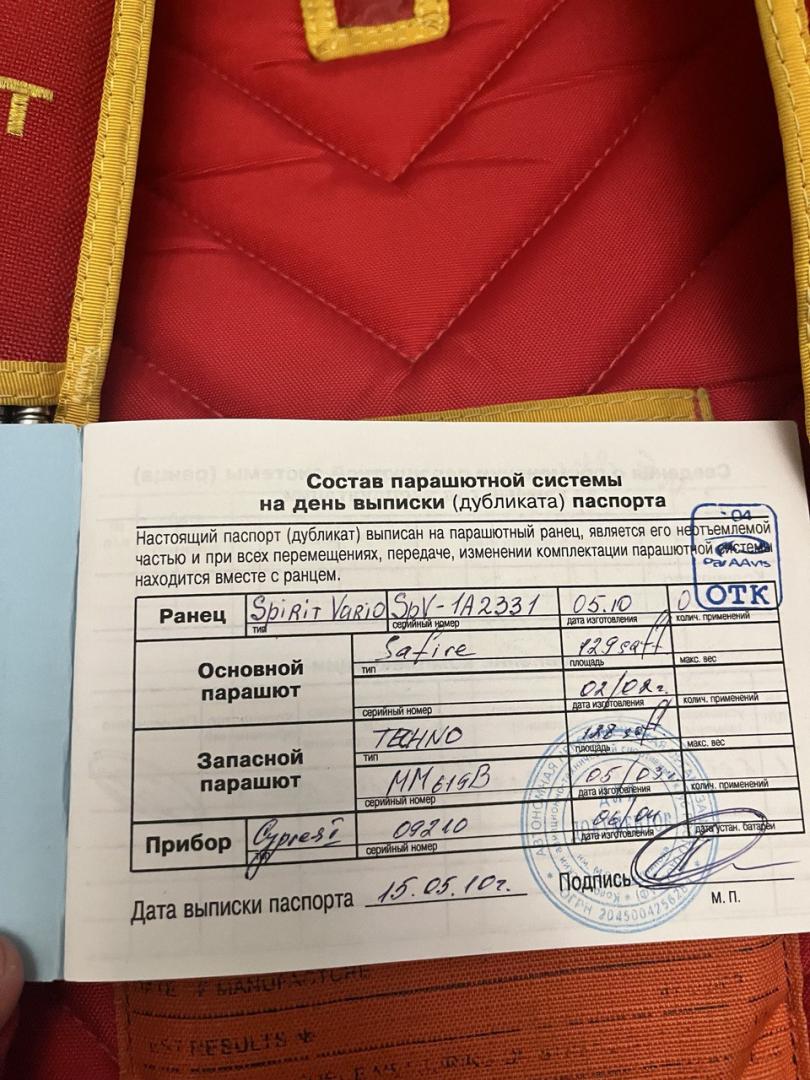 T
Состав парашютной системы
на день выписки (дубликата) паспорта
Настоящий паспорт (дубликат) выписан на парашютный ранец, является его неотъемлемой
частью и при всех перемещениях, передаче, изменении комплектации парашютной системы
находится вместе с ранцем.
04
ParAAvis
ОТК
Ранец Spirit Vario SpV-1A2331 05.10 0
тип серийный номер дата изготовления колич. применений
Основной парашют
Safire 129 saft
тип площадь макс. вес
02/02г.
серийный номер дата изготовления колич. применений
Запасной парашют
TECHNO 128
тип площадь макс. вес
MM619B 05/03
серийный номер дата изготовления колич. применений
Прибор Cypres 09210 06/04
тип серийный номер дата изготовления дата устан. батареи
Дата выписки паспорта 15.05.10г. Подпись
М. П.
ОГРН
MANUFACTURE
RESULTS *